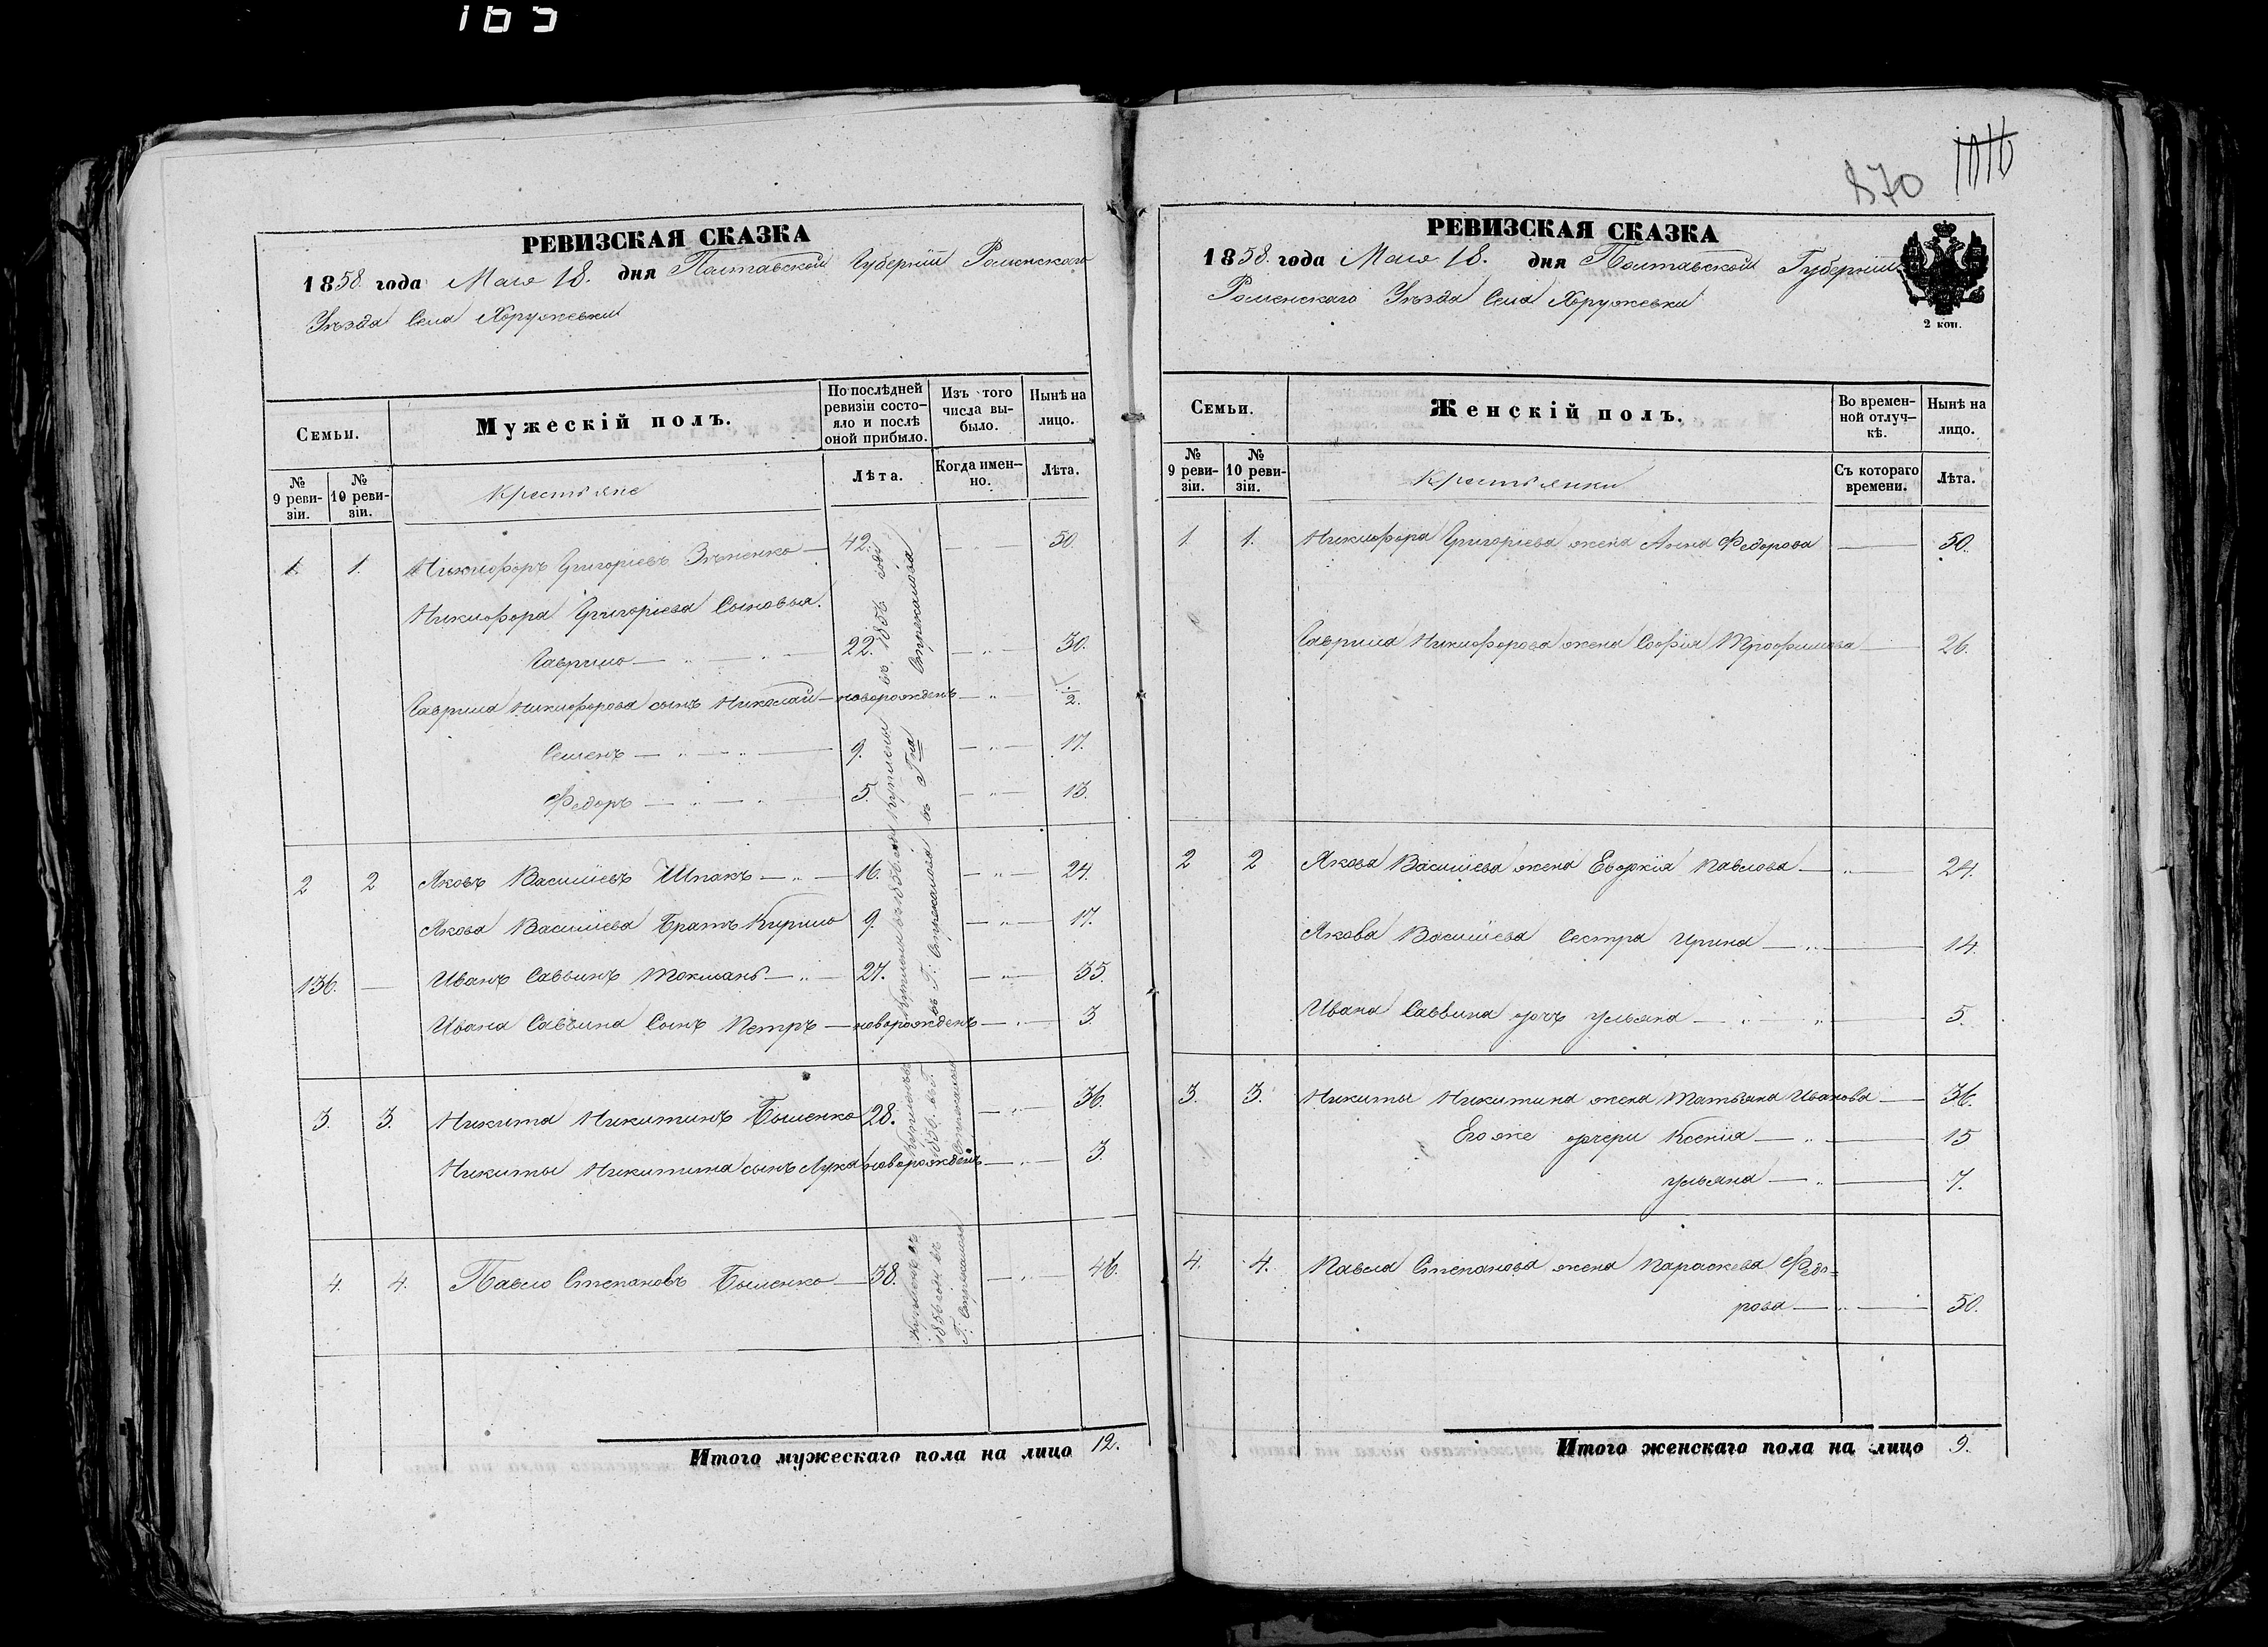 165
РЕВИЗСКАЯ СКАЗКА
1858 года Мая 18. дня Полтавской Губерніи Роменскаго
Уѣзда Села Хоружевки
Семьи.
Мужескій полъ.
По послѣдней ревизіи состо-
яло и послѣ
оной прибыло.
Изъ того
числа вы-
было.
Нынѣ на
лицо.
№ 9 реви-
зіи.
№ 10 реви-
зіи.
Крестьяне
Лѣта.
Когда имен-
но.
Лѣта.
1. 1. Никифоръ Григоріевъ — 42. — — 50.
Никифора Григоріева Сыновья.
Гаврило — „ — „ — 22. — „ — 30.
Гаврила Никифорова сынъ Николай — новорожденъ — „ — 1/2.
Семенъ — „ — „ — 9. — „ — 17.
Федоръ — „ — „ — 5. — „ — 13.
въ 1856 году
Стрекалова
2 2 Яковъ Васильевъ Шпакъ — „ — 16. — „ — 24.
Якова Васильева Братъ Кирило 9. — „ — 17.
136. — Иванъ Саввинъ Токмань — „ — 27. — „ — 35.
Ивана Саввина Сынъ Петръ — новорожденъ — „ — 3.
3. 3. Никита Никитинъ Бышенко 28. — „ — 36.
Никиты Никитина сынъ Лука новорожденъ — „ — 3.
4. 4. Павло Степановъ Бышенко — 38. — „ — 46.
Купленъ въ
1856 году въ
Г. Стрекалова
Итого мужескаго пола на лицо 12.
870 1016
РЕВИЗСКАЯ СКАЗКА
1858. года Мая 18. дня Полтавской Губерніи
Роменскаго Уѣзда Села Хоружевки
2 коп.
Семьи.
Женскій полъ.
Во времен-
ной отлуч-
кѣ.
Нынѣ на
лицо.
№ 9 реви-
зіи.
№ 10 реви-
зіи.
Крестьянки
Съ котораго
времени.
Лѣта.
1. 1. Никифора Григоріева жена Анна Федорова — 50.
Гаврила Никифорова жена Софія Трофимова — 26.
2 2 Якова Васильева жена Евдокія Павлова — „ — 24.
Якова Васильева Сестра Ирина — „ — 14.
Ивана Саввина дочь Ульяна — „ — „ — 5.
3. 3. Никиты Никитина жена Татьяна Иванова — 36.
Его же дочери Ксенія — „ — 15
Ульяна — „ — 7.
4. 4. Павла Степанова жена Параскева Федо=
рова — „ — 50.
Итого женскаго пола на лицо 9.